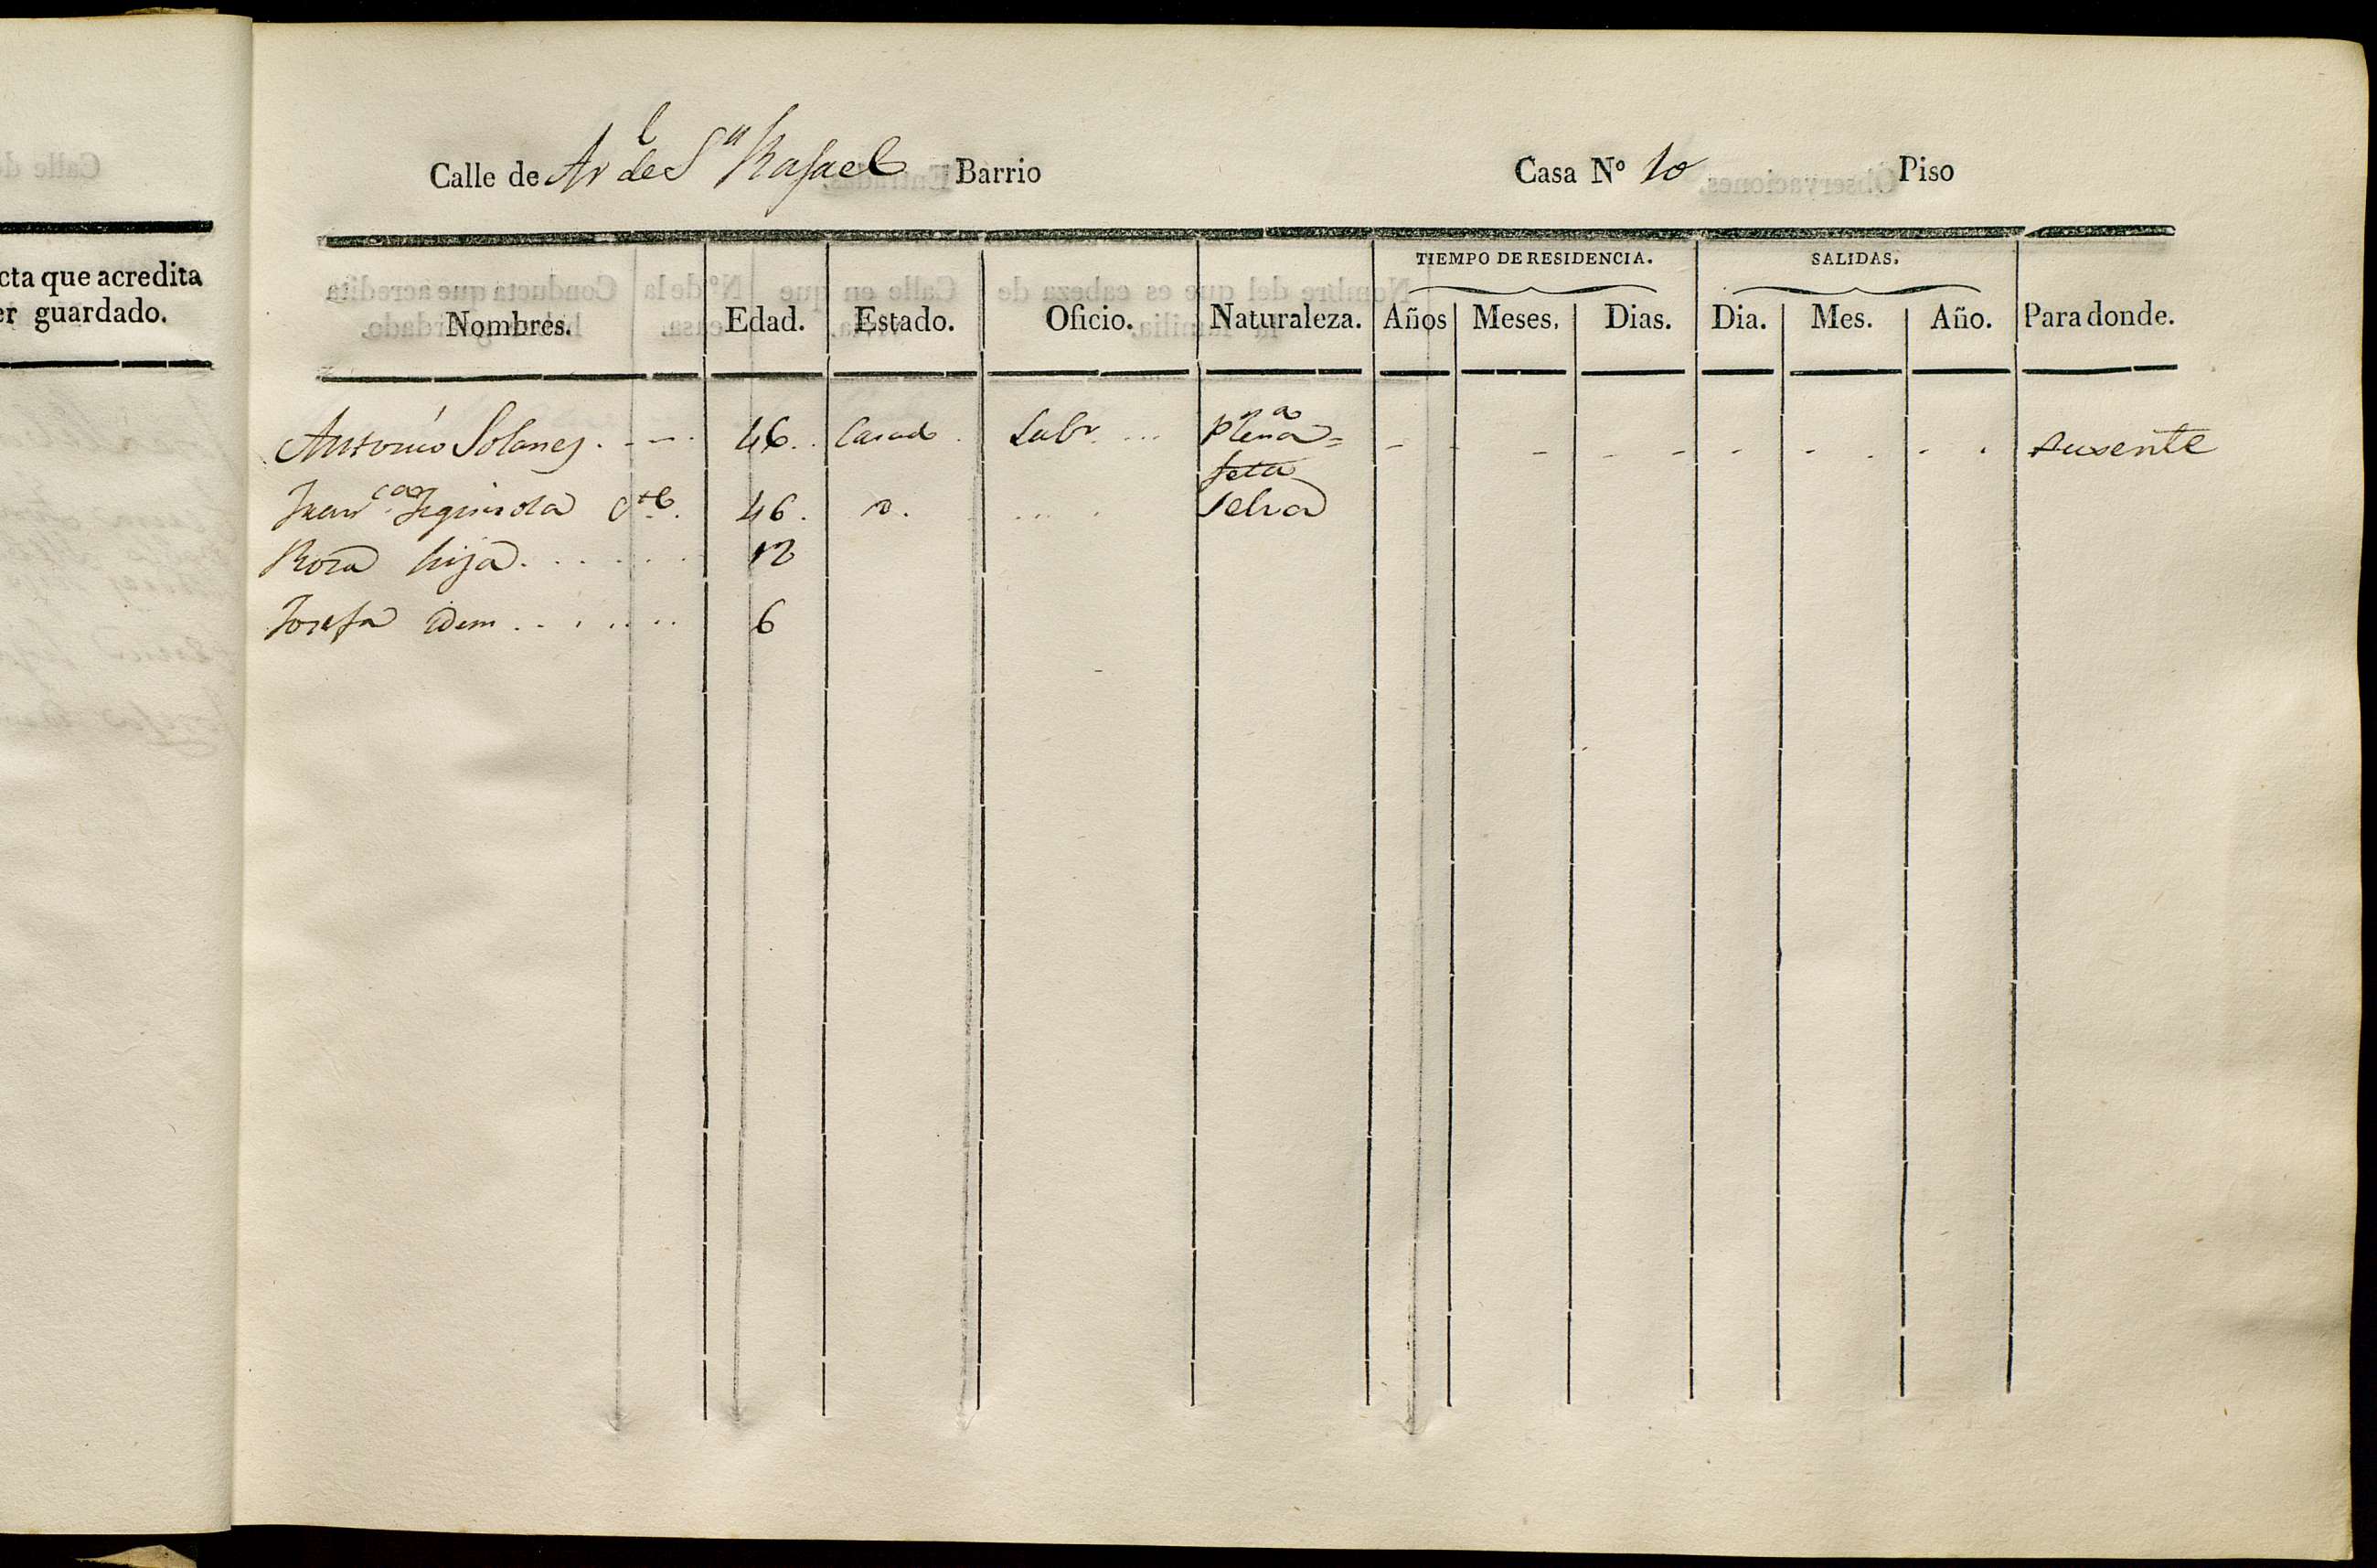 cta que acredita
er guardado.
Calle de Ar.l de Sn Rafael Barrio Casa Nº 10 Piso
TIEMPO DE RESIDENCIA. SALIDAS.
Nombres. Edad. Estado. Oficio. Naturaleza. Años Meses. Dias. Dia. Mes. Año. Para donde.
Antonio Solanes 46. Casado Labr. Ausente
46. Selva
Rosa hija 12
Josefa idem 6